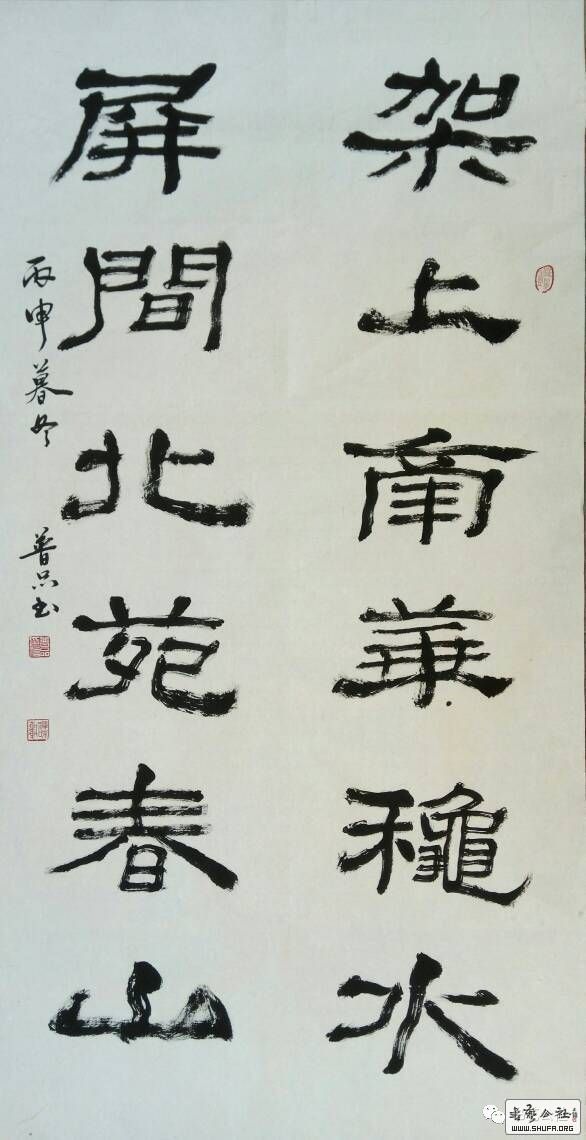 架上南華穐水
屏間北苑春山
丙申暮冬
书艺公社
WWW.SHUFA.ORG